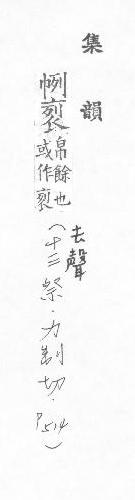 集韻
㤡裂帛餘也或作裂
去聲
(十三祭.力制切.P514)